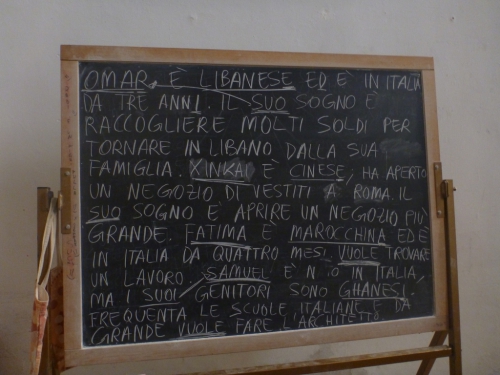 OMAR, È LIBANESE ED È IN ITALIA
DA TRE ANNI. IL SUO SOGNO È
RACCOGLIERE MOLTI SOLDI PER
TORNARE IN LIBANO DALLA SUA
FAMIGLIA. XINKAI È CINESE, HA APERTO
UN NEGOZIO DI VESTITI A ROMA. IL
SUO SOGNO È APRIRE UN NEGOZIO PIÙ
GRANDE. FATIMA È MAROCCHINA ED È
IN ITALIA DA QUATTRO MESI, VUOLE TROVARE
UN LAVORO. SAMUEL È IN ITALIA,
MA I SUOI GENITORI SONO GHANESI,
FREQUENTA LE SCUOLE ITALIANE E DA
GRANDE VUOLE FARE L'ARCHITETTO